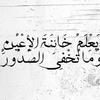 يَعْلَمُ خَائِنَةَ الأَعْيُنِ
وَمَا تُخْفِي الصُّدُورُ